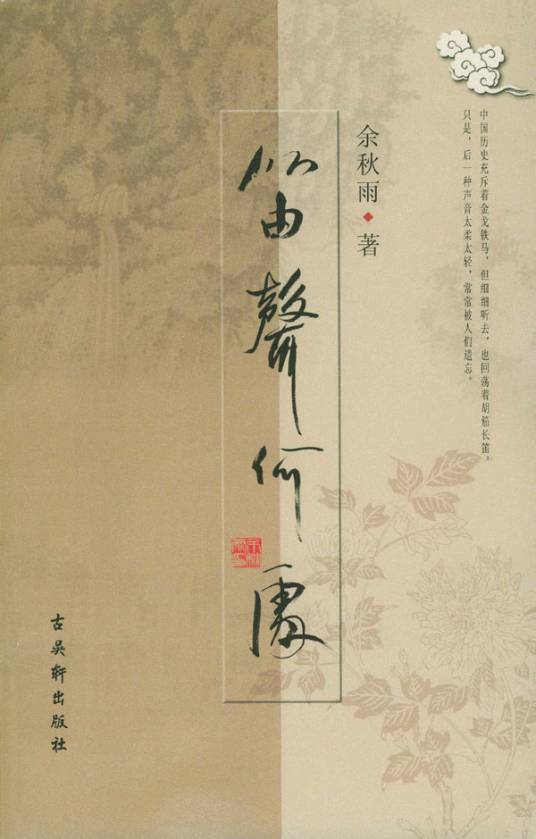 中国历史充斥着金戈铁马，但细细听去，也回荡着胡笳长笛。
只是，后一种声音太柔太轻，常常被人们遗忘。
余秋雨◆著
笛聲何處
古吴轩出版社